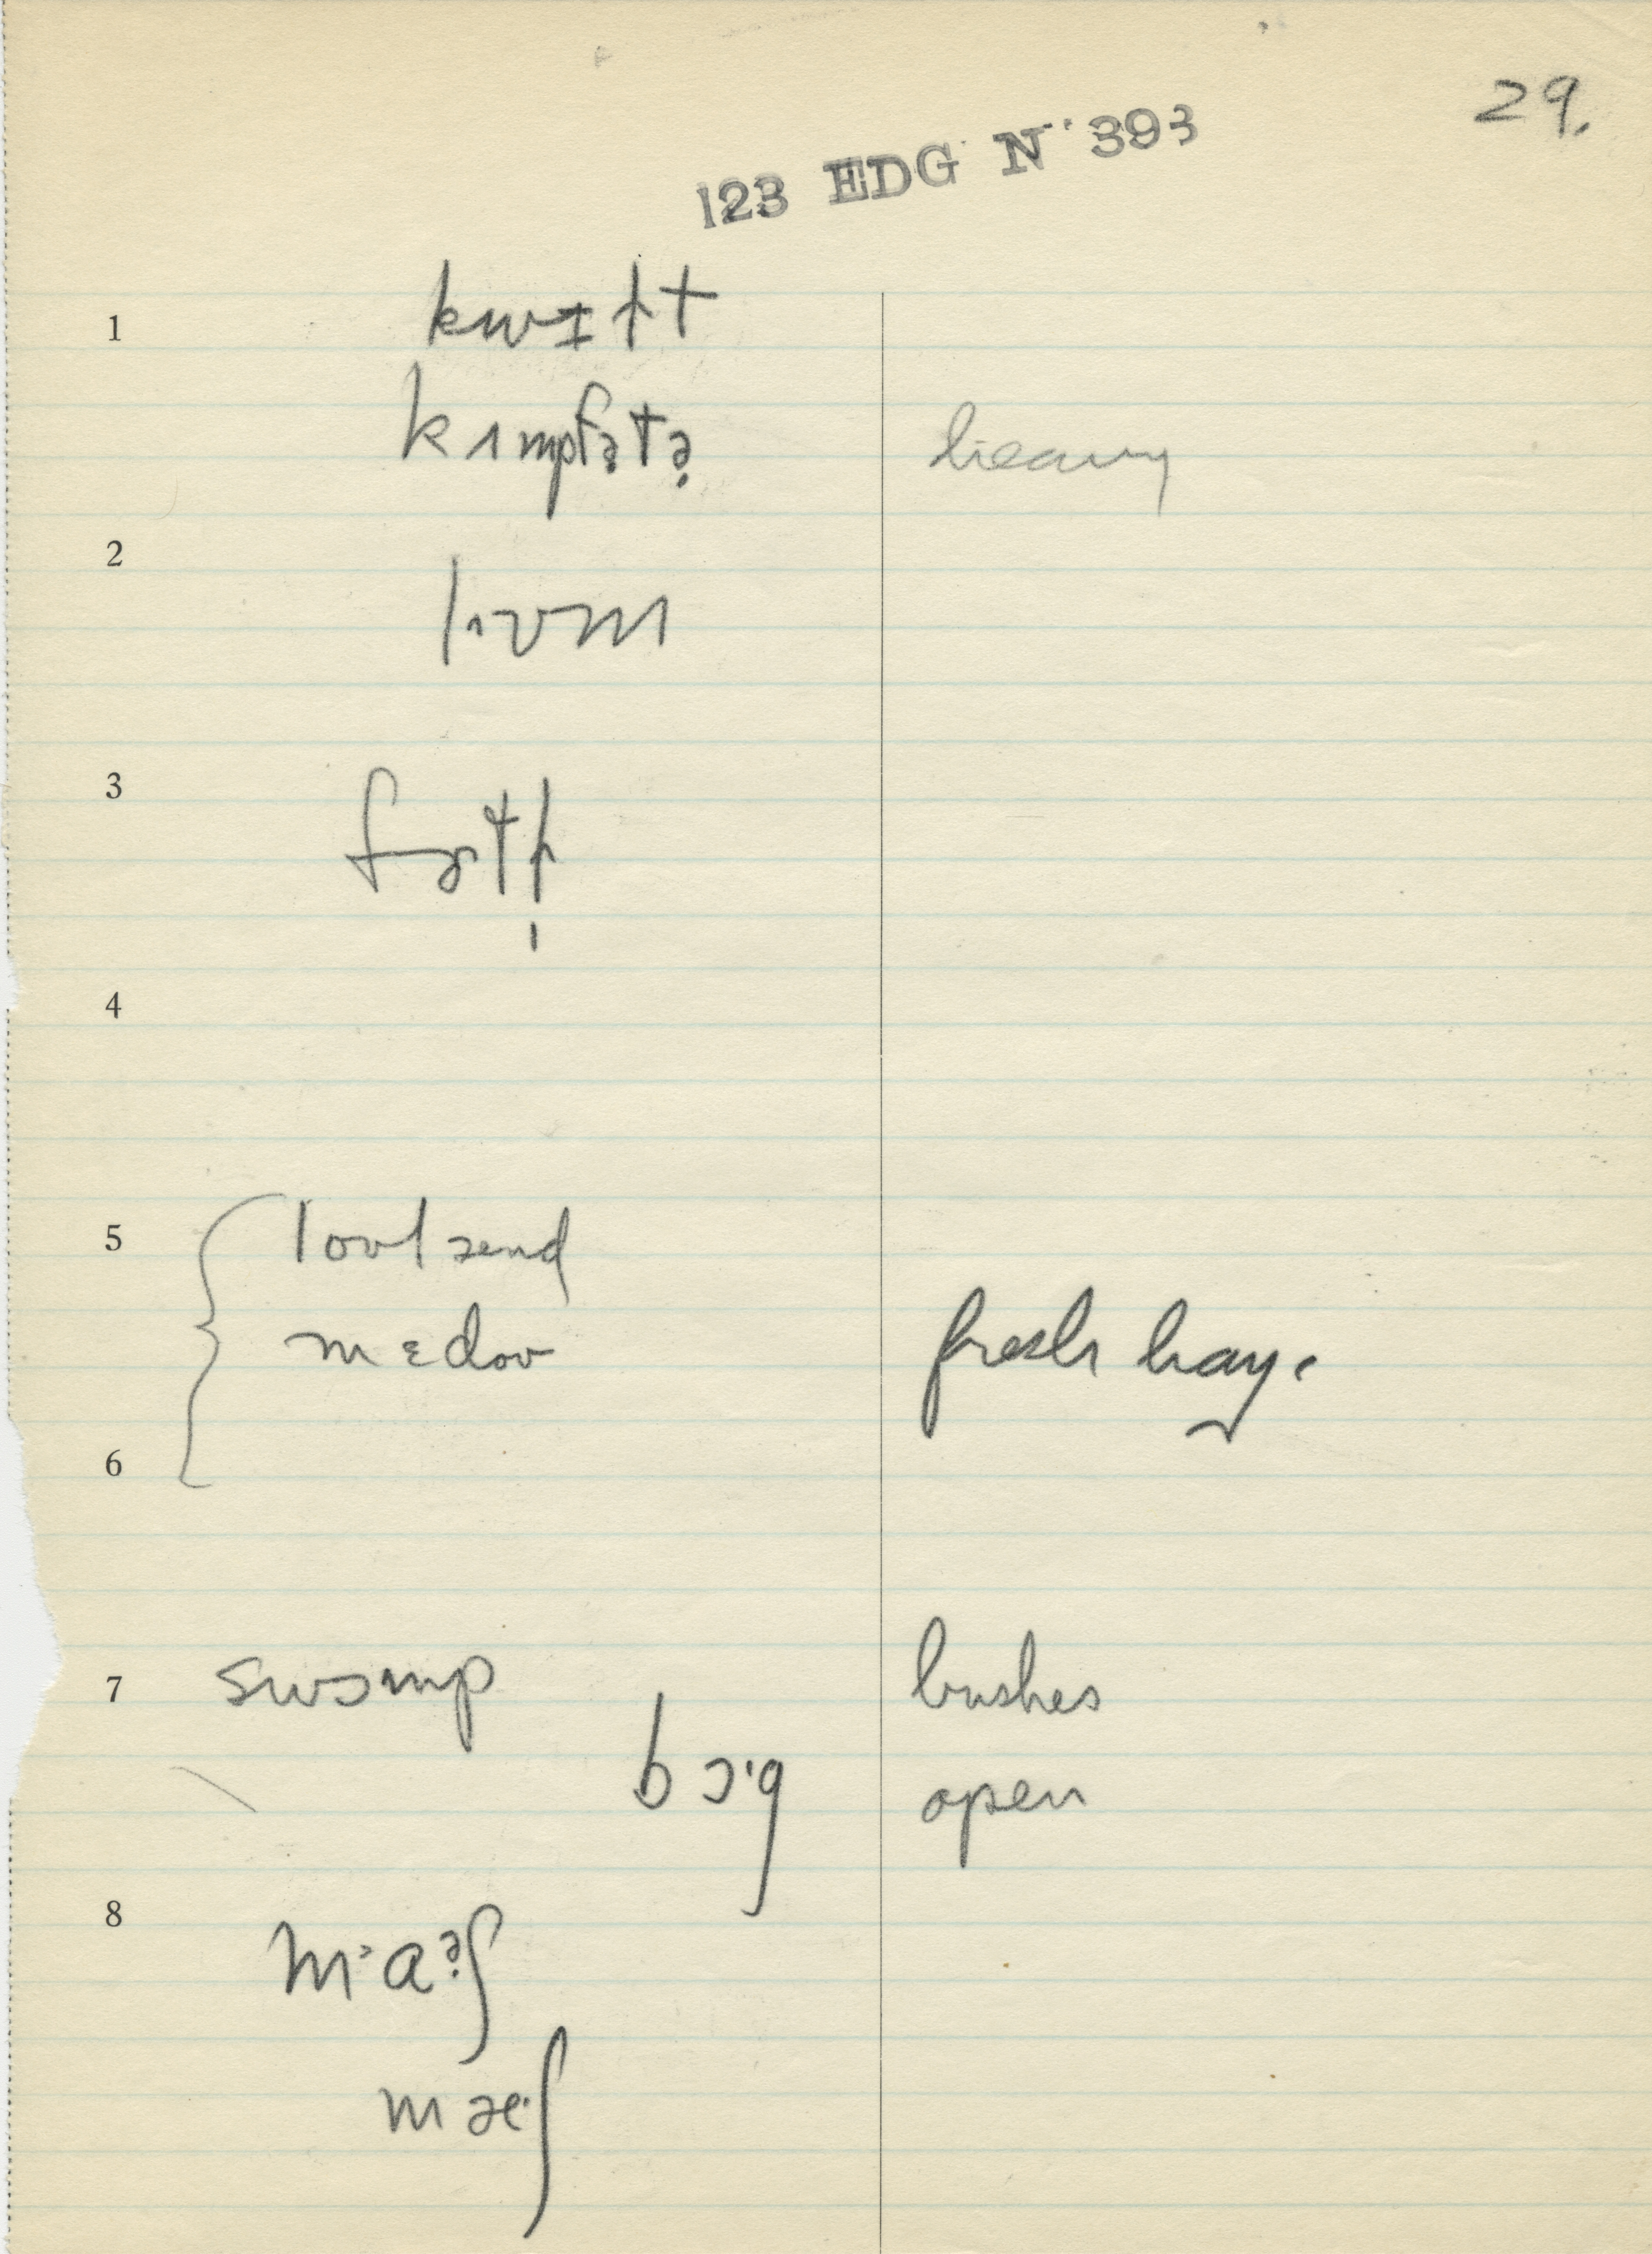 29.
123 EDG N 393
1 kwɪɫt
kʌmpfətə heavy
2
3
4
5 lowlænd
mɛdoʊ fresh hay.
6
7 swɔmp bushes
bɔ·g open
8 m·aəʃ
mæ·ʃ